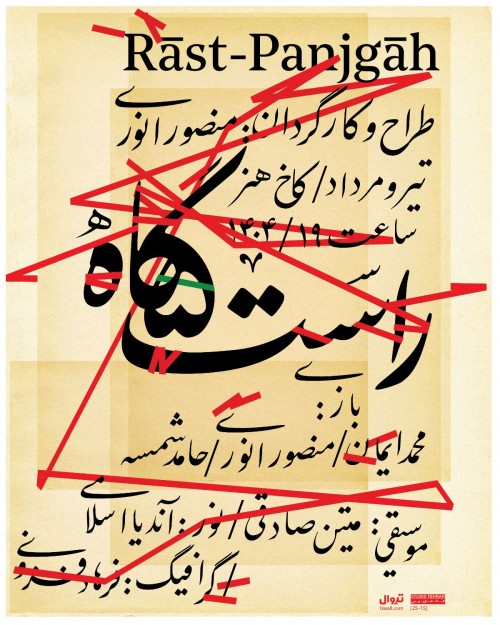 Rāst-Panjgāh
طراح و کارگردان: منصور انوری
تیر و مرداد/ کاخ هنر
ساعت ۱۹/ ۱۴۰۴
راست پنجگاه
بازی:
محمد ایمان/ منصور انور/ حامد شمسه
موسیقی: متین صادقی/ نور: آندیا اسلامی
/ گرافیک: فرهاد فزونی
تیوال
tiwall.com
STUDIO TEHRAN
[25-15]